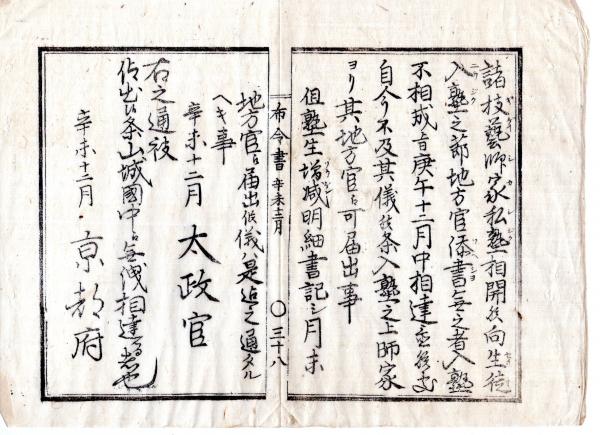 諸技藝師家私塾相開候向生徒
入塾之節地方官添書無之者入塾
不相成旨庚午十二月中相達置候処
自今不及其儀候条入塾之上師家
ヨリ其地方官ヘ可届出事
但塾生増减明細書記シ月末
布令書 辛未十二月 〇 三十八
地方官ヘ届出候儀ハ是迠之通タル
ヘキ事
辛未十二月 太政官
右之通被
仰出候条山城國中ヘ無洩相達る者也
辛未十二月 京都府